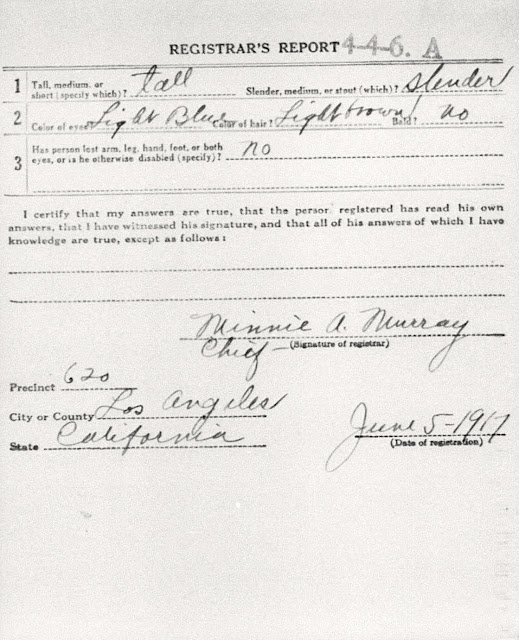 REGISTRAR'S REPORT 4-4-6. A
1 Tall, medium, or short (specify which)? tall Slender, medium, or stout (which)? slender
2 Color of eyes Light Blue Color of hair? Light brown Bald? no
3 Has person lost arm, leg, hand, foot, or both eyes, or is he otherwise disabled (specify)? no
I certify that my answers are true, that the person registered has read his own
answers, that I have witnessed his signature, and that all of his answers of which I have
knowledge are true, except as follows:
Minnie A. Murray
Chief - (Signature of registrar)
Precinct 620
City or County Los Angeles
State California June 5-1917
(Date of registration)